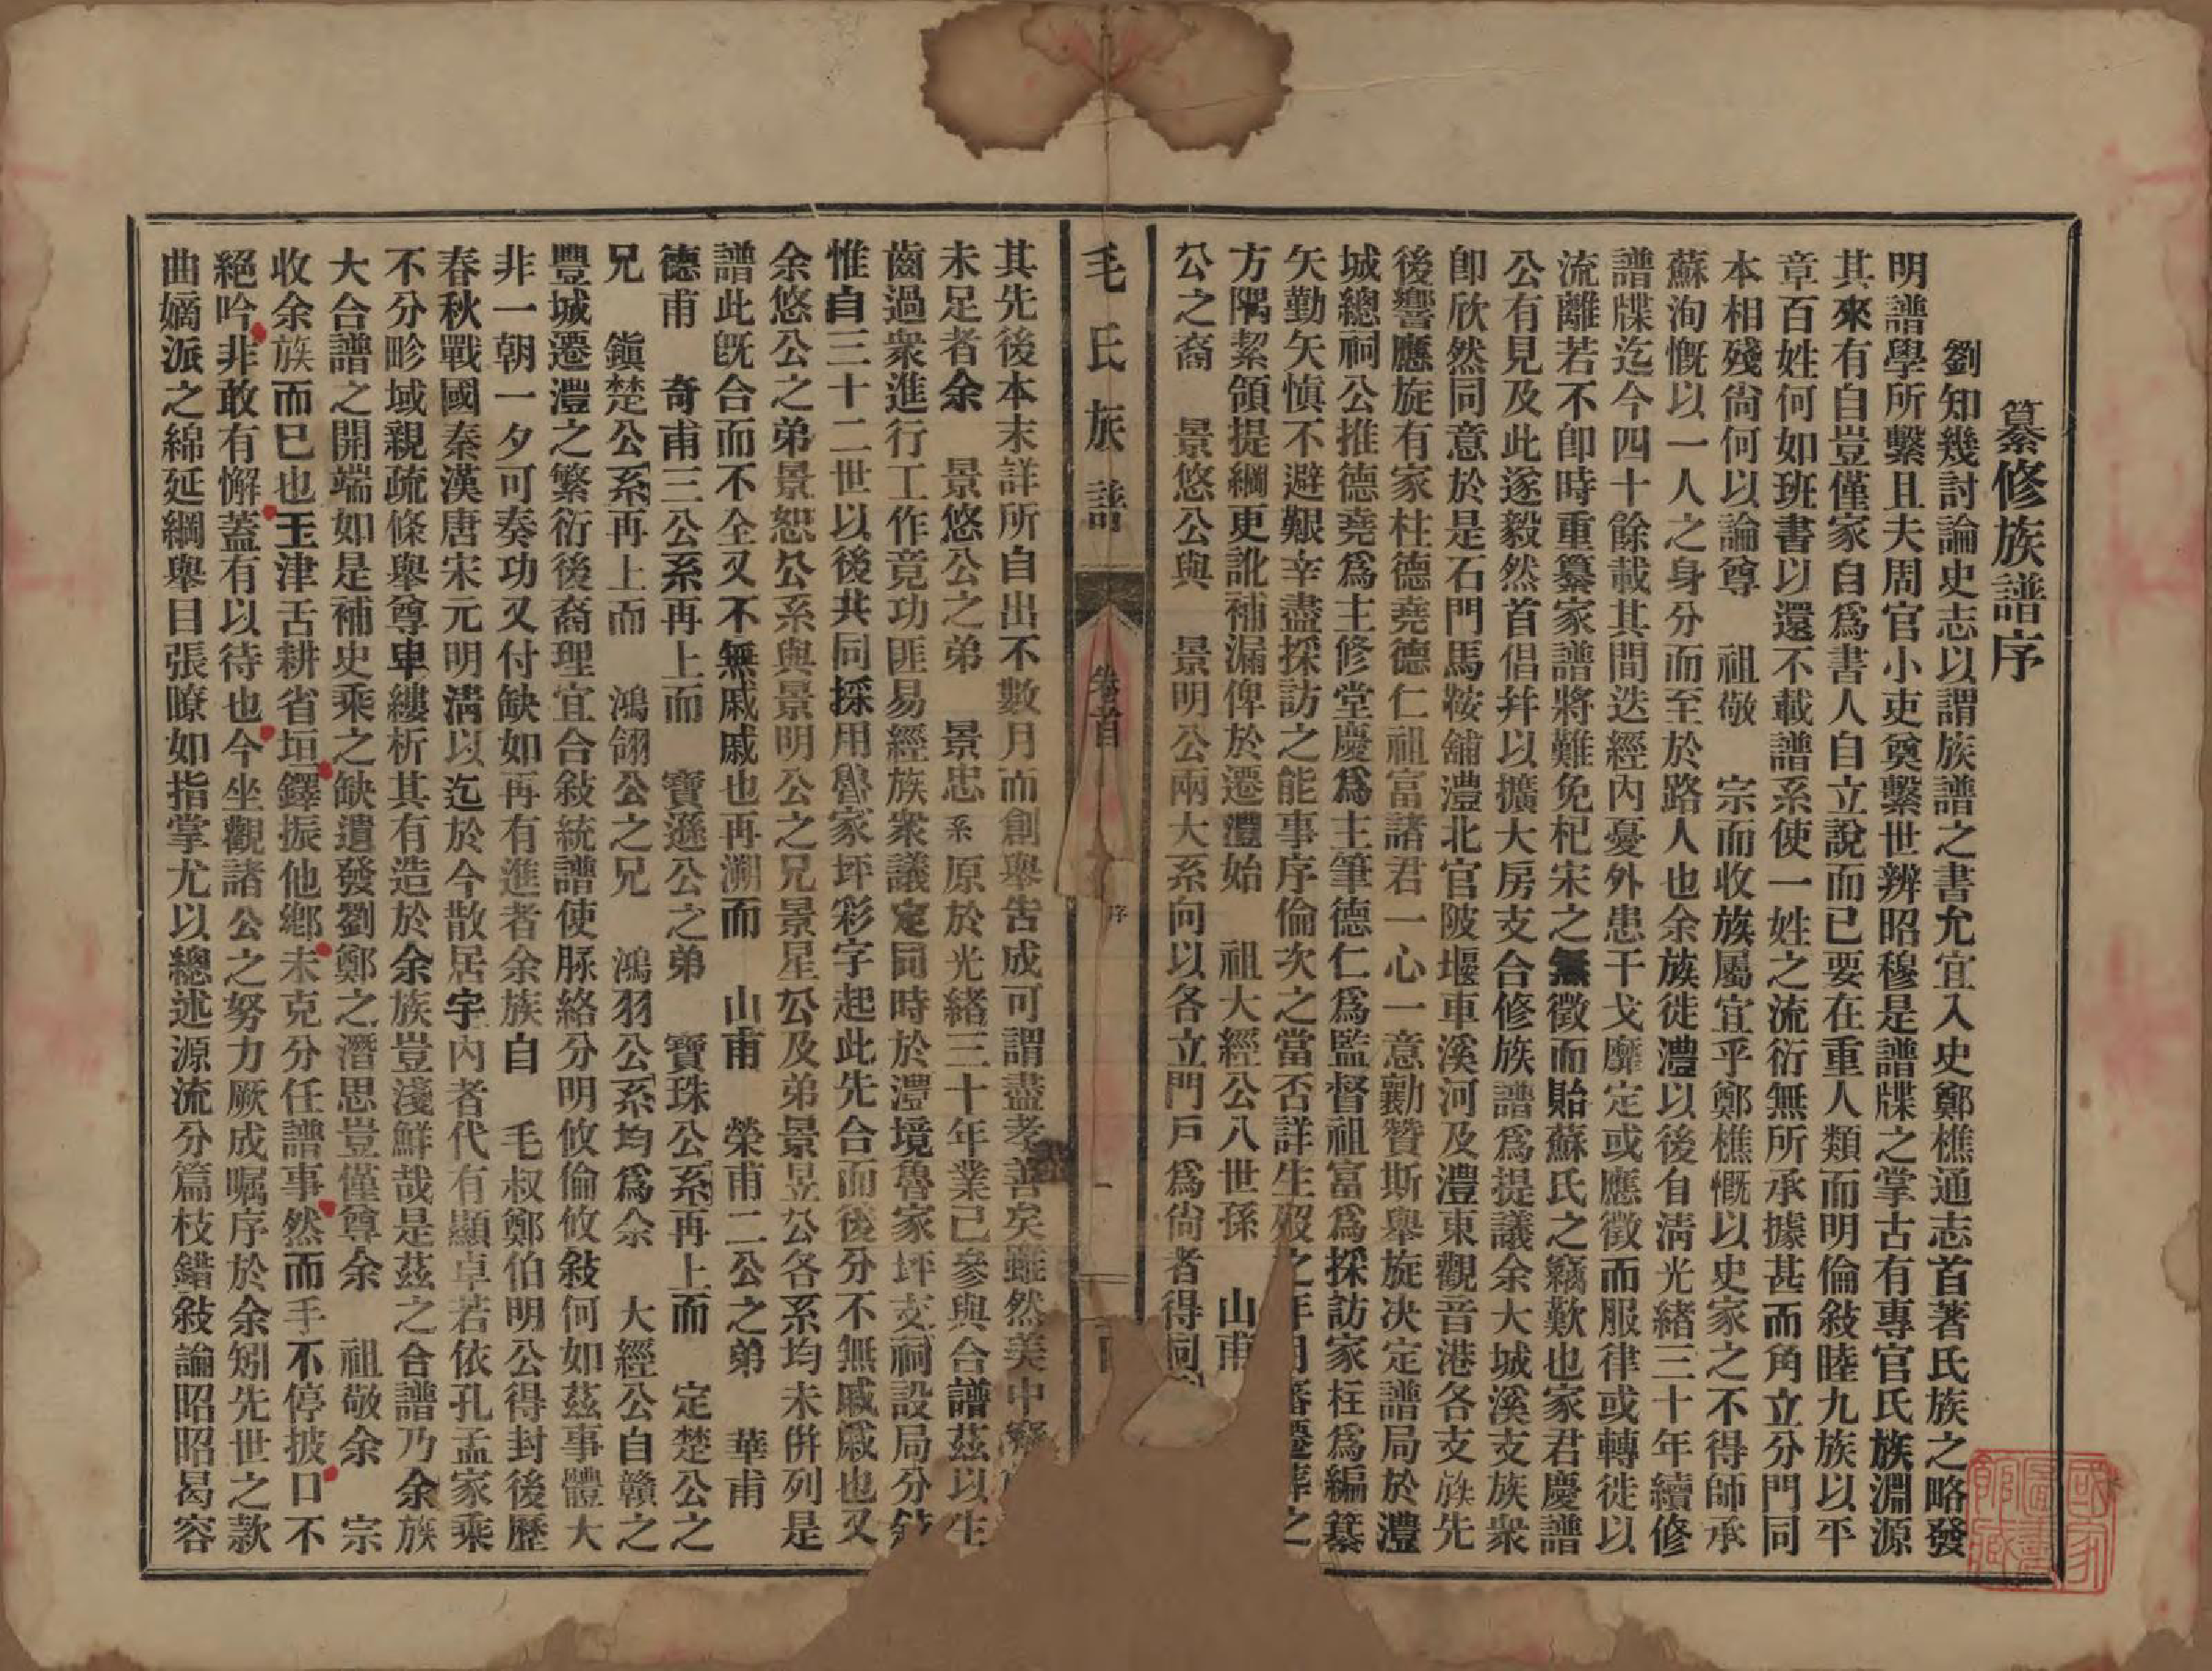 纂修族譜序
劉知幾討論史志以謂族譜之書允宜入史鄭樵通志首著氏族之略發
明譜學所繫且夫周官小吏奠繫世辨昭穆是譜牒之掌古有專官氏族淵源
其來有自豈僅家自爲書人自立說而已要在重人類而明倫敍睦九族以平
章百姓何如班書以還不載譜系使一姓之流衍無所承據甚而角立分門同
本相殘尙何以論尊　祖敬　宗而收族屬宜乎鄭樵慨以史家之不得師承
蘇洵慨以一人之身分而至於路人也余族徙澧以後自淸光緒三十年續修
譜牒迄今四十餘載其間迭經內憂外患干戈靡定或應徵而服律或轉徙以
流離若不卽時重纂家譜將難免杞宋之無徵而貽蘇氏之竊歎也家君慶譜
公有見及此遂毅然首倡幷以擴大房支合修族譜爲提議余大城溪支族衆
卽欣然同意於是石門馬鞍舖澧北官陂堰車溪河及澧東觀音港各支族先
後響應旋有家柱德堯德仁祖富諸君一心一意勷贊斯舉旋决定譜局於澧
城總祠公推德堯爲主修堂慶爲主筆德仁爲監督祖富爲採訪家柱爲編纂
矢勤矢愼不避艱辛盡採訪之能事序倫次之當否詳生歿之年月審遷葬之
方隅絜領提綱更訛補漏俾於遷澧始　祖大經公八世孫　山甫
公之裔　景悠公與　景明公兩大系向以各立門戶爲尙者得同
毛氏族譜
卷首
序
一
其先後本末詳所自出不數月而創舉告成可謂盡孝善矣雖然美中
未足者余　景悠公之弟　景忠系原於光緒三十年業已參與合譜茲以生
齒過衆進行工作竟功匪易經族衆議定同時於澧境魯家坪支祠設局分
惟自三十二世以後共同採用魯家坪彩字起此先合而後分不無戚戚也又
余悠公之弟景恕公系與景明公之兄景星公及弟景昱公各系均未倂列是
譜此旣合而不全又不無戚戚也再溯而　山甫　榮甫二公之弟　華甫
德甫　奇甫三公系再上而　寶遜公之弟　寶珠公系再上而　定楚公之
兄　鎭楚公系再上而　鴻翎公之兄　鴻羽公系均爲余　大經公自贛之
豐城遷澧之繁衍後裔理宜合敍統譜使脉絡分明攸倫攸敍何如茲事體大
非一朝一夕可奏功又付缺如再有進者余族自　毛叔鄭伯明公得封後歷
春秋戰國秦漢唐宋元明淸以迄於今散居宇內者代有顯卓若依孔孟家乘
不分畛域親疏條舉尊卑縷析其有造於余族豈淺鮮哉是茲之合譜乃余族
大合譜之開端如是補史乘之缺遺發劉鄭之潛思豈僅尊余　祖敬余　宗
收余族而已也玉津舌耕省垣鐸振他鄕未克分任譜事然而手不停披口不
絕吟非敢有懈蓋有以待也今坐觀諸公之努力厥成囑序於余矧先世之款
曲嫡派之綿延綱舉目張瞭如指掌尤以總述源流分篇枝錯敍論昭昭曷容
國家圖書館藏